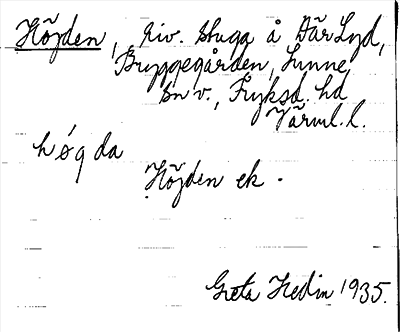 Höjden, riv. stuga å Där Lyd,
Bryggegården, Sunne
sn v., Fryksd. hd
Värml. l.
høgda
Höjden ek.
Greta Hedin 1935.